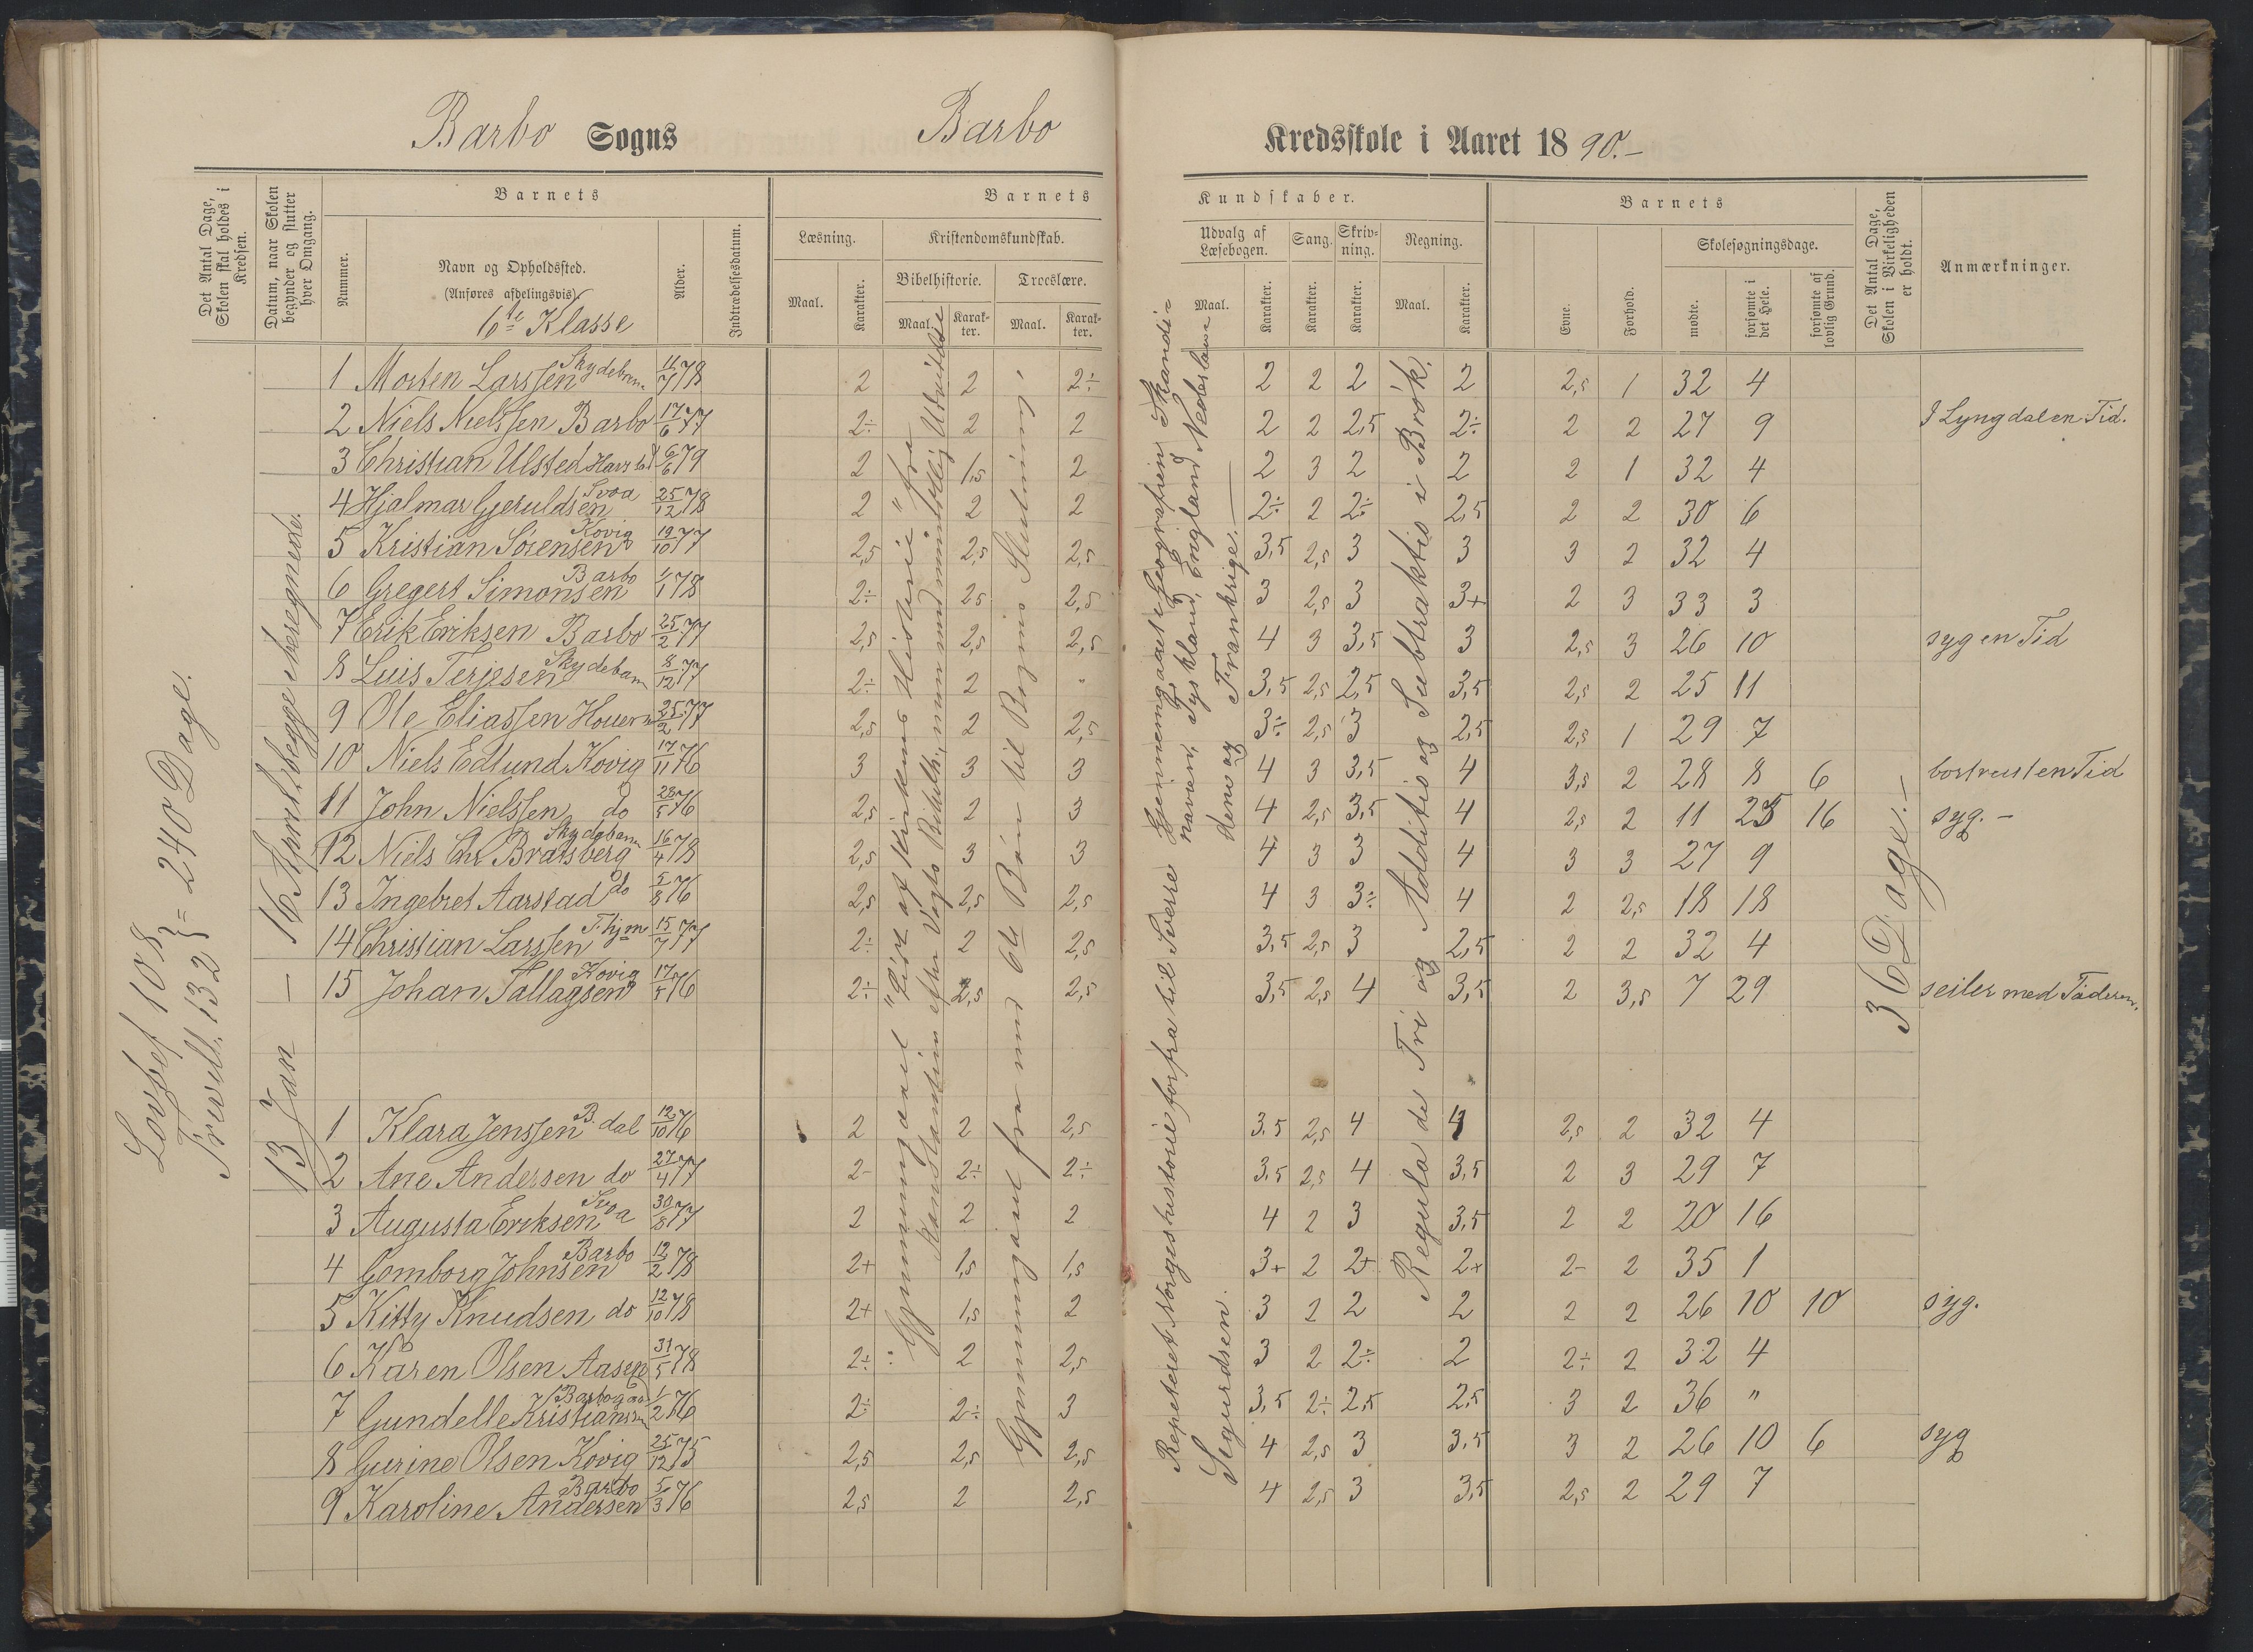 Barbo Sogns Barbo Kredsskole i Aaret 1890.-
Det Antal Dage, Skolen skal holdes i Kredsen.
Datum, naar Skolen begynder og slutter hver Omgang.
Barnets
Nummer.
Navn og Opholdssted.
(Anføres afdelingsvis).
6te Klasse
Alder.
Indtrædelsesdatum.
Barnets Kundskaber.
Læsning.
Maal. Karakter.
Kristendomskundskab.
Bibelhistorie. Troeslære.
Maal. Karakter. Maal. Karakter.
Udvalg af Læsebogen. Sang. Skrivning. Regning.
Maal. Karakter. Karakter. Karakter. Maal. Karakter.
Barnets
Evne. Forhold.
Skolesøgningsdage.
mødte. forsømte i det Hele. forsømte af lovlig Grund.
Det Antal Dage, Skolen i Virkeligheden er holdt.
Anmærkninger.
Lovbef 108
Frivill. 132 } = 240 Dage.
13 Jan — 16 April begge iberegnede.
1 Morten Larssen 11/7 78 2 2 2÷ 2 2 2 2 2,5 1 32 4
2 Niels Nielssen Barbo 17/6 77 2÷ 2 2 2 2 2,5 2÷ 2 2 27 9 I Lyngdal en Tid.
3 Christian Ulsted 6/6 79 2 1,5 2 2 3 2 2 2 1 32 4
4 Hjalmar Gjeruldsen Svoa 25/12 78 2 2 2 2÷ 2 2÷ 2,5 2 2 30 6
5 Kristian Sørensen Kovig 19/10 77 2,5 2,5 2,5 3,5 2,5 3 3 3 2 32 4
6 Gregert Simonsen Barbo 4/1 78 2÷ 2,5 2,5 3 2,5 3 3+ 2 3 33 3
7 Erik Eriksen Barbo 25/2 77 2,5 2,5 2,5 4 3 3,5 3 2,5 3 26 10 syg en Tid
8 Luis Terjesen Skydebanen 8/12 77 2÷ 2 " 3,5 2,5 2,5 3,5 2,5 2 25 11
9 Ole Eliassen 25/2 77 2,5 2 2,5 3÷ 2,5 3 2,5 2,5 1 29 7
10 Niels Edlund Kovig 17/11 76 3 3 3 4 3 3,5 4 3,5 2 28 8 6 bortreist en Tid
11 John Nielssen do 23/5 76 2,5 2 3 4 2,5 3,5 4 2,5 2 11 25 16 syg. -
12 Niels Chr Bratsberg Skydebanen 16/4 78 2,5 3 3 4 3 3 4 3 3 27 9
13 Ingebret Aarstad do 5/8 76 2,5 2,5 2,5 4 3 3÷ 4 2 2,5 18 18
14 Christian Larssen 15/7 77 2÷ 2 2,5 3,5 2,5 3 2,5 2 2 32 4
15 Johan Tallagsen Kovig 17/5 76 2÷ 2,5 2,5 3,5 2,5 4 3,5 2 3,5 7 29 seiler med Faderen.
1 Klara Jenssen B. dal 12/10 76 2 2 2,5 3,5 2,5 4 4 2,5 2 32 4
2 Ane Andersen do 27/4 77 2- 2÷ 2÷ 3,5 2,5 4 3,5 2 3 29 7
3 Augusta Eriksen Svoa 30/8 77 2 2 2 4 2 3 3,5 2 2 20 16
4 Gomborg Johnsen Barbo 12/2 78 2+ 1,5 1,5 3+ 2 2+ 2+ 2- 2 35 1
5 Kitty Knudsen do 12/10 78 2+ 1,5 2 3 2 2 2 2 2 26 10 10 syg.
6 Karen Olsen 31/5 78 2÷ 2 2,5 3 2 2÷ 2 2÷ 2 32 4
7 Gundelle Kristiansen 1/2 76 2÷ 2÷ 3 3,5 2÷ 2,5 2,5 3 2 36 "
8 Gurine Olsen Kovig 25/12 75 2,5 2,5 2,5 4 2,5 3 3,5 3 2 26 10 6 syg
9 Karoline Andersen Barbo 5/3 76 2,5 2 2,5 4 2,5 3 3,5 2,5 2 29 7
Gjennemgaaet "Lidt af Kirkens Historie" fra
Konstantin efter Vogts Bibelh., men med mundtlig Udvidelse
Gjennemgaaet fra 6te Bøn til Bogens Slutning.
Repeteret Norgeshistorie forfra til Sverre
Sigurdsen.
Gjennemgaaet i Geografien: Skandi-
navien, Tyskland, England Nederlan-
dene og Frankrige. —
Regula de Tri og Additio og Subtraktio i Brøk.
36 Dage. —